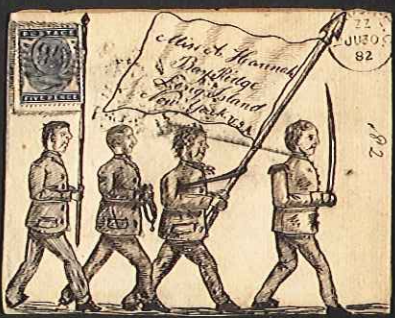 POSTAGE
FIVE PENCE
Miss A Hannah
Bay Ridge
Long Island
New York U.S.A
22
JU30
82
82